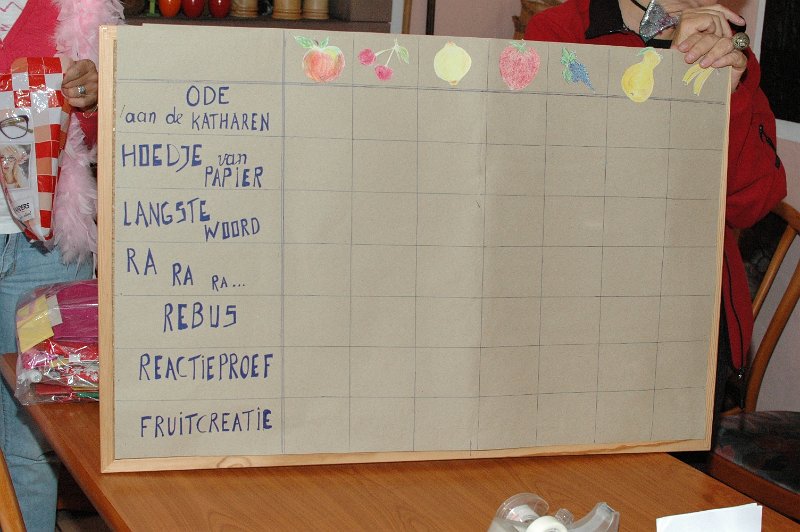 ODE
'aan de KATHAREN
HOEDJE van
PAPIER
LANGSTE
WOORD
RA RA RA...
REBUS
REACTIEPROEF
FRUITCREATIE